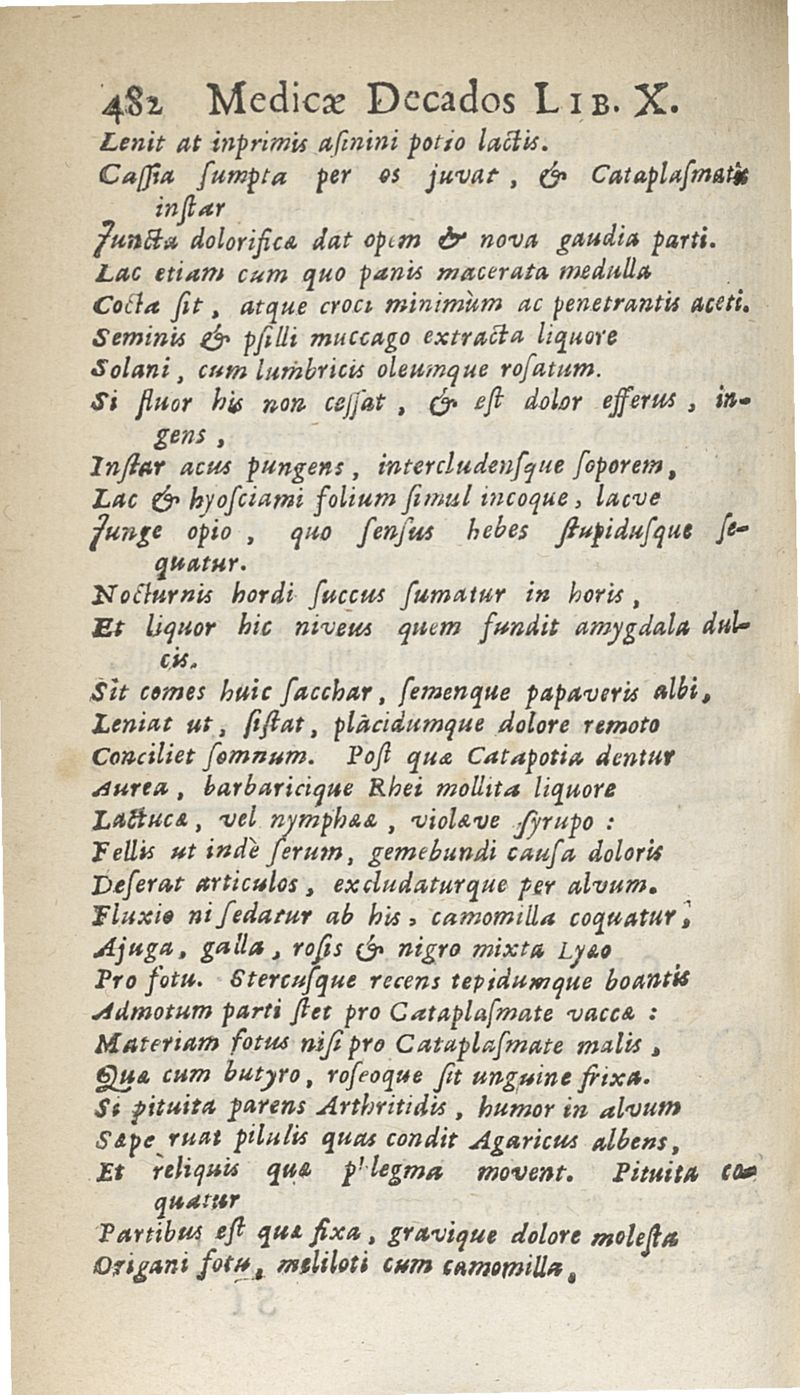 482 Medicæ Decados LIB. X.
Lenit at inprimis aſinini potio lactis.
Caſſia ſumpta per os juvat, & Cataplaſmatis
inſtar
Juncta dolorificæ dat opem & nova gaudia parti.
Lac etiam cum quo panis macerata medulla
Cocta ſit, atque croci minimùm ac penetrantis aceti.
Seminis & pſilli muccago extracta liquore
Solani, cum lumbricis oleumque roſatum.
Si fluor his non ceſſat, & eſt dolor efferus, in-
gens,
Inſtar acus pungens, intercludenſque ſoporem,
Lac & hyoſciami folium ſimul incoque, lacve
Junge opio, quo ſenſus hebes ſtupiduſque ſe-
quatur.
Nocturnis hordi ſuccus ſumatur in horis,
Et liquor hic niveus quem fundit amygdala dul-
cis.
Sit comes huic ſacchar, ſemenque papaveris albi,
Leniat ut, ſiſtat, plàcidumque dolore remoto
Conciliet ſomnum. Poſt quæ Catapotia dentur
Aurea, barbaricique Rhei mollita liquore
Lactucæ, vel nymphææ, violæve ſyrupo:
Fellis ut indè ſerum, gemebundi cauſa doloris
Deſerat articulos, excludaturque per alvum.
Fluxio ni ſedatur ab his, camomilla coquatur,
Ajuga, galla, roſis & nigro mixta Lyæo
Pro fotu. Stercuſque recens tepidumque boantis
Admotum parti ſtet pro Cataplaſmate vaccæ:
Materiam fotus niſi pro Cataplaſmate malis,
Quæ cum butyro, roſeoque ſit unguine frixa.
Si pituita parens Arthritidis, humor in alvum
Sæpe ruat pilulis quas condit Agaricus albens,
Et reliquis quæ phlegma movent. Pituita co-
quatur
Partibus eſt quæ fixa, gravique dolore moleſta
Origani fotu, meliloti cum camomilla,